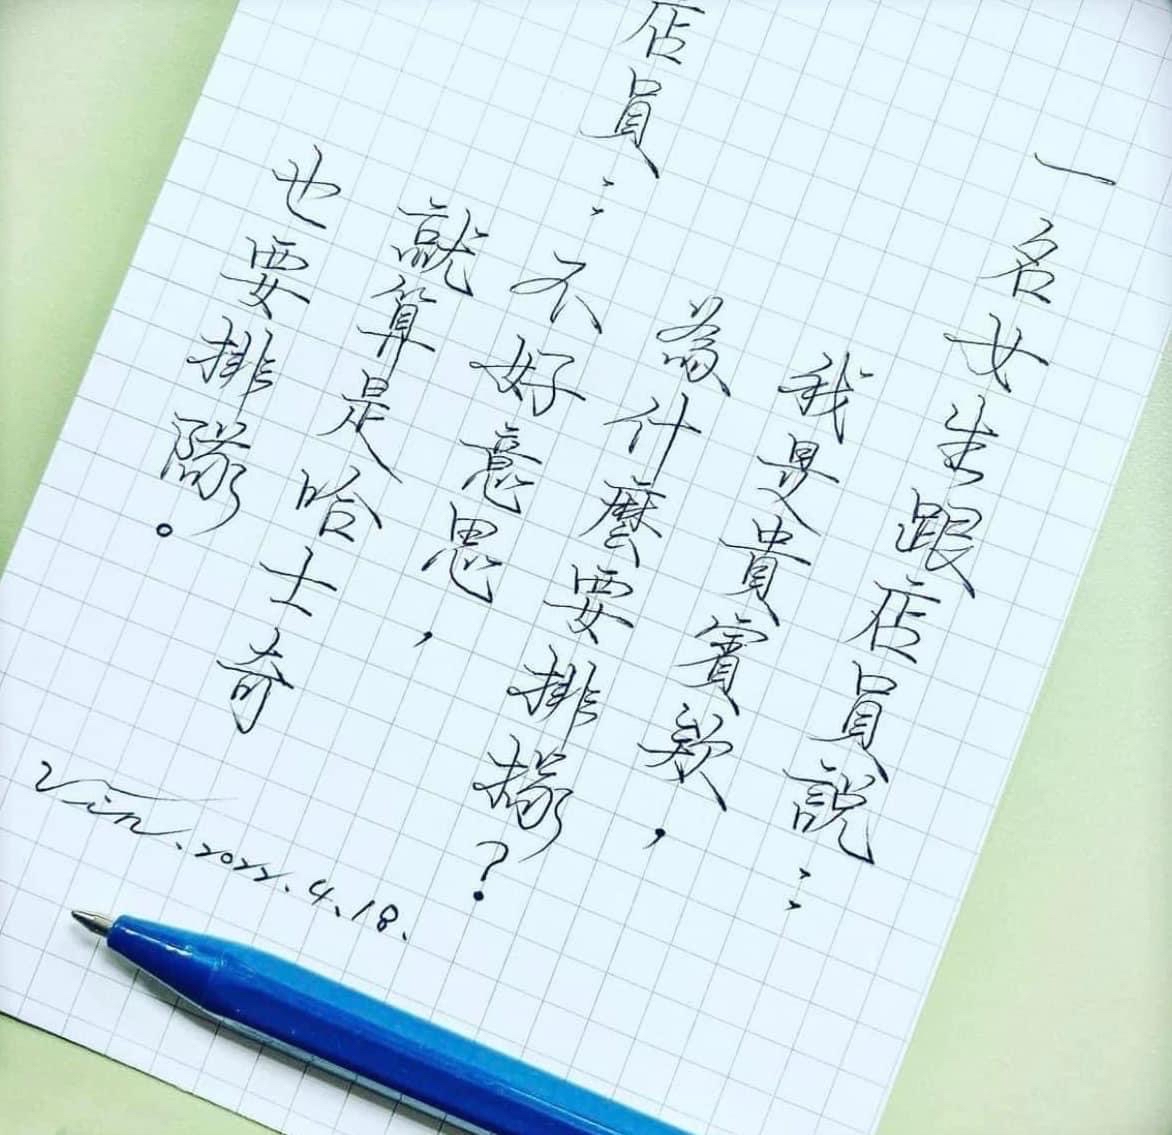 一名女生跟店員說：
我是貴賓欸，
為什麼要排隊？
店員：不好意思，
就算是哈士奇
也要排隊。
Vin. 2022.4.18.